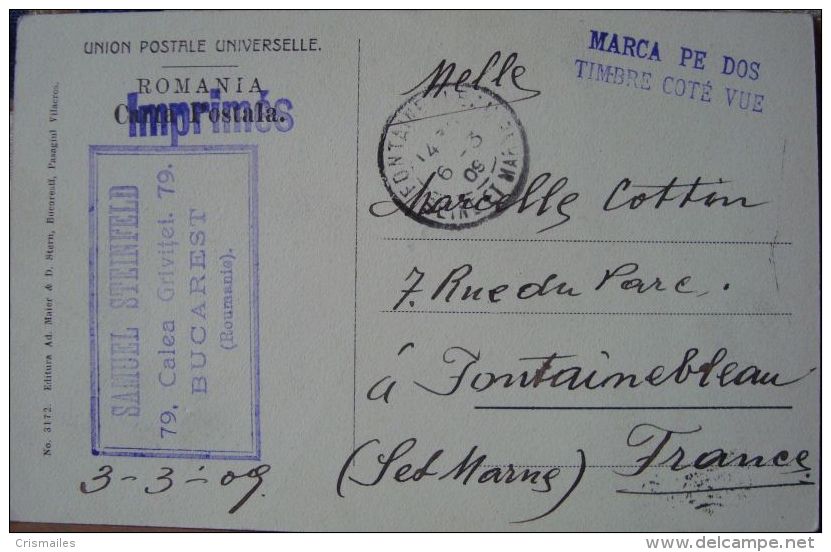 UNION POSTALE UNIVERSELLE.
ROMANIA
Carta Postala.
Imprimés
MARCA PE DOS
TIMBRE COTÉ VUE
No. 3172. Editura Ad. Maier & D. Stern, Bucuresti, Pasagiul Vilacros.
SAMUEL STEINFELD
79, Calea Griviţei. 79.
BUCAREST
(Roumanie).
3-3-09
FONTAINEBLEAU
6 -3
09
SEINE ET MARNE
Melle
Marcelle Cottin
7. Rue du Parc.
á Fontainebleau
(Set Marne) France
Crismailes
www.delcampe.net